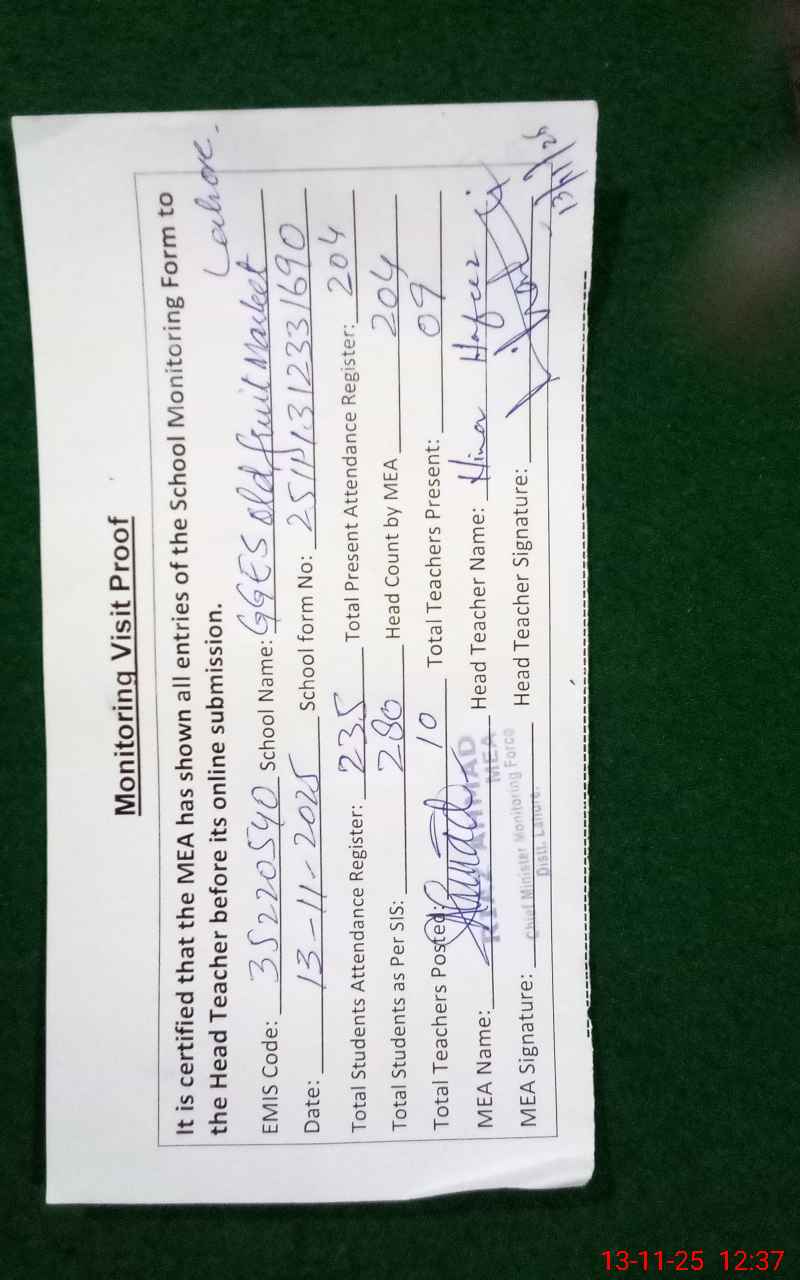 Monitoring Visit Proof
It is certified that the MEA has shown all entries of the School Monitoring Form to
the Head Teacher before its online submission.
EMIS Code: 35220540 School Name: GGES old fruit Market Lahore.
Date: 13-11-2025 School form No: 25111312331690
Total Students Attendance Register: 235 Total Present Attendance Register: 204
Total Students as Per SIS: 280 Head Count by MEA 204
Total Teachers Posted: 10 Total Teachers Present: 09
MEA Name: AHMAD MEA Head Teacher Name: Hina Hafeez
MEA Signature: Chief Minister Monitoring Force Head Teacher Signature:
Distt. Lahore.
13-11-25 12:37